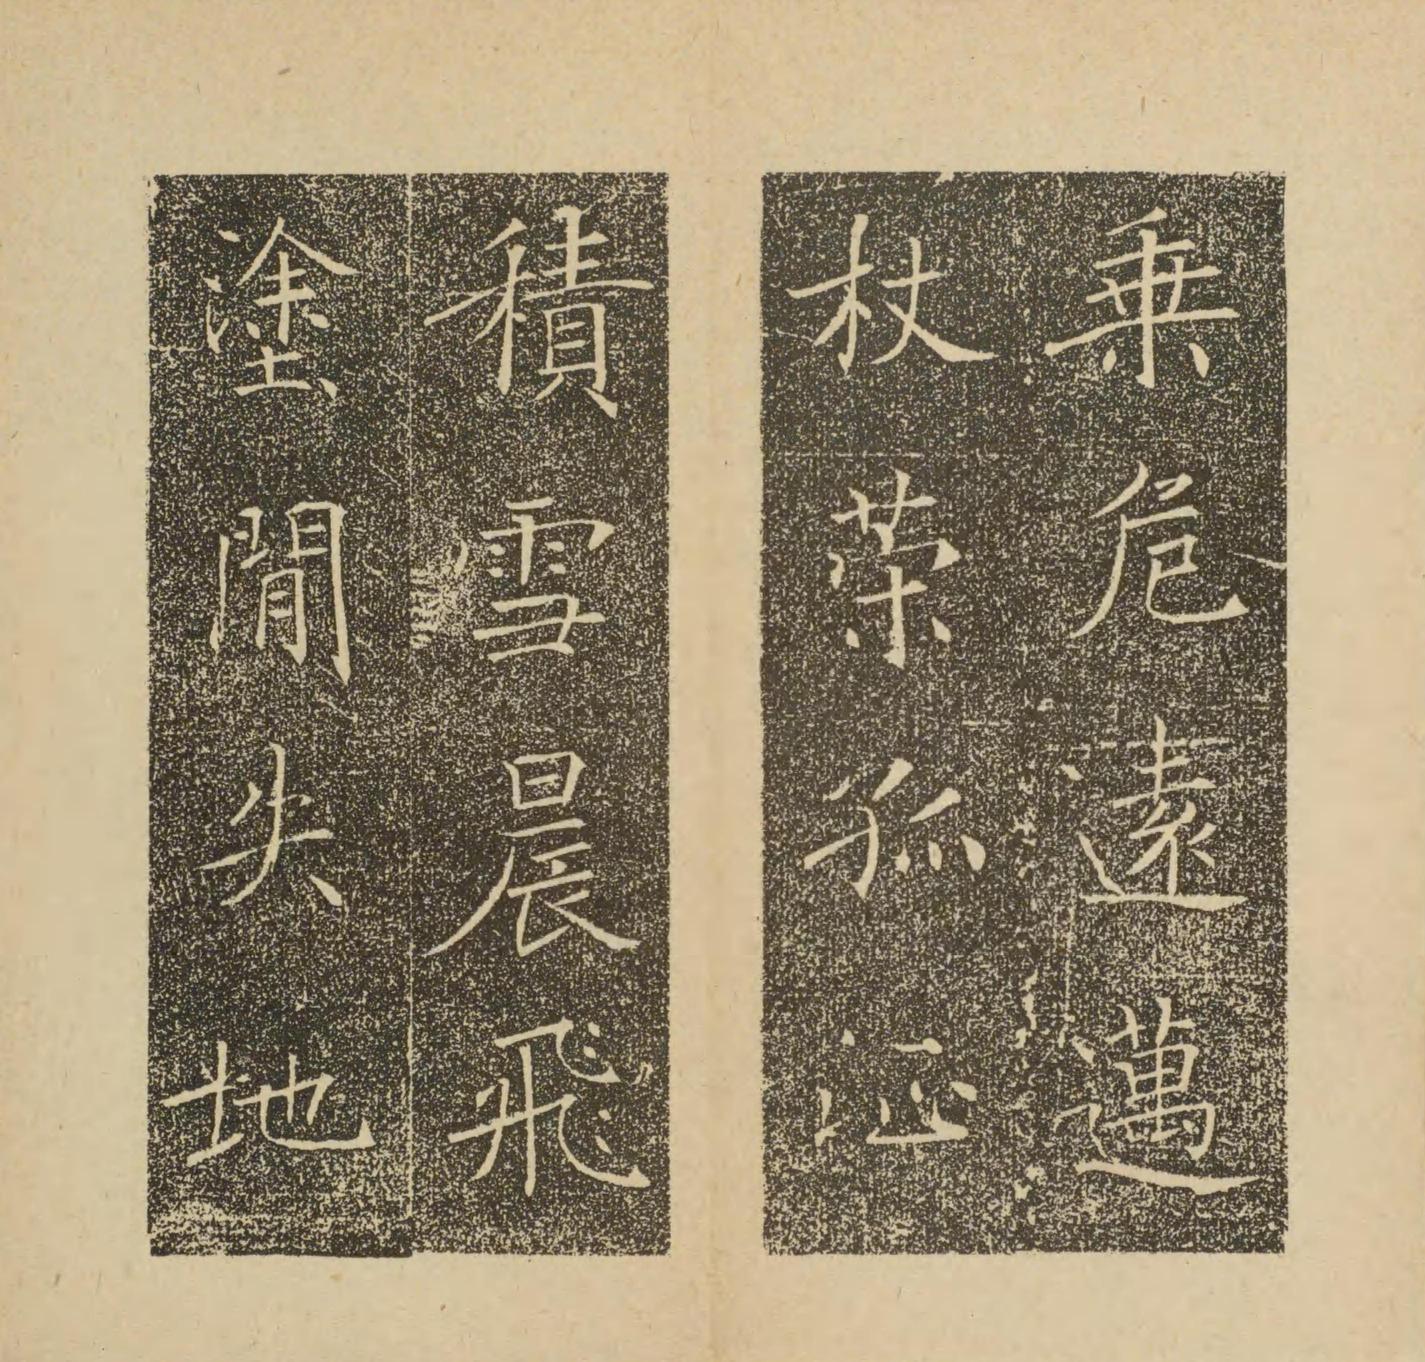 乗危遠邁
杖策孤征
積雪晨飛
塗閒失地